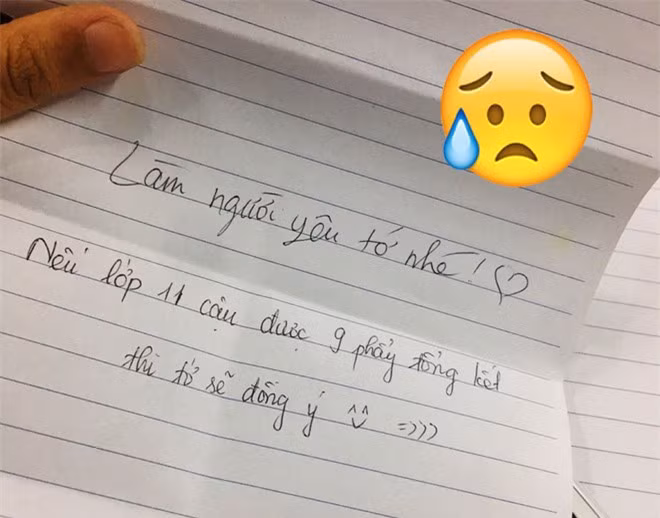 Làm người yêu tớ nhé! ♡
Nếu lớp 11 cậu được 9 phẩy tổng kết
thì tớ sẽ đồng ý ^^ =)))